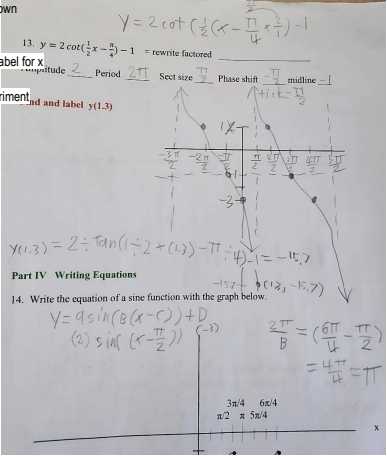 own
π/2
y = 2 cot (1/2 (x - π/4 × 2/1) - 1
13. y = 2 cot(1/2 x - π/4) - 1 = rewrite factored
abel for x
Amplitude 2 Period 2π Sect size π/2 Phase shift π/2 midline -1
riment
and label y(1.3)
1 tick = π/2
1
-3π/2 -2π/2 -π/2 π/2 2π/2 3π/2 4π/2 5π/2
-1
-3
y(1.3) = 2 ÷ tan(1 ÷ 2 × (1.3) - π ÷ 4) - 1 = -15.7
-15.7 (1.3, -15.7)
Part IV Writing Equations
14. Write the equation of a sine function with the graph below.
y = a sin(B(x - c)) + D
(2) sin( (x - π/2)) (-3)
2π/B = (6π/4 - π/2)
= 4π/4 = π
3π/4 6π/4
π/2 π 5π/4
x